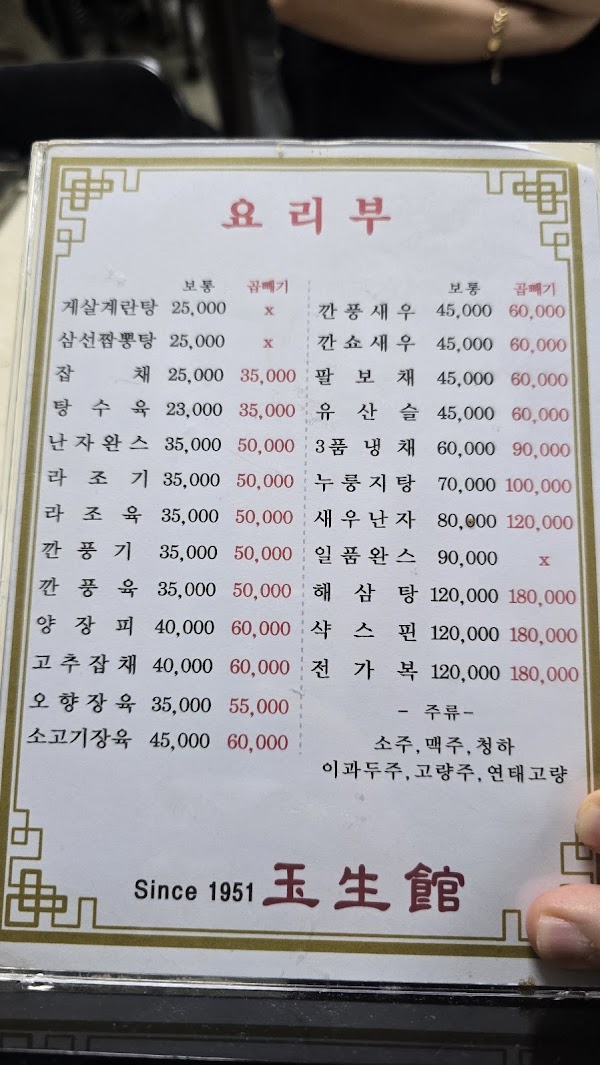 요리부
보통 곱빼기
게살계란탕 25,000 x
삼선짬뽕탕 25,000 x
잡채 25,000 35,000
탕수육 23,000 35,000
난자완스 35,000 50,000
라조기 35,000 50,000
라조육 35,000 50,000
깐풍기 35,000 50,000
깐풍육 35,000 50,000
양장피 40,000 60,000
고추잡채 40,000 60,000
오향장육 35,000 55,000
소고기장육 45,000 60,000
보통 곱빼기
깐풍새우 45,000 60,000
깐쇼새우 45,000 60,000
팔보채 45,000 60,000
유산슬 45,000 60,000
3품냉채 60,000 90,000
누룽지탕 70,000 100,000
새우난자 80,000 120,000
일품완스 90,000 x
해삼탕 120,000 180,000
샥스핀 120,000 180,000
전가복 120,000 180,000
- 주류-
소주,맥주,청하
이과두주,고량주,연태고량
Since 1951 玉生館